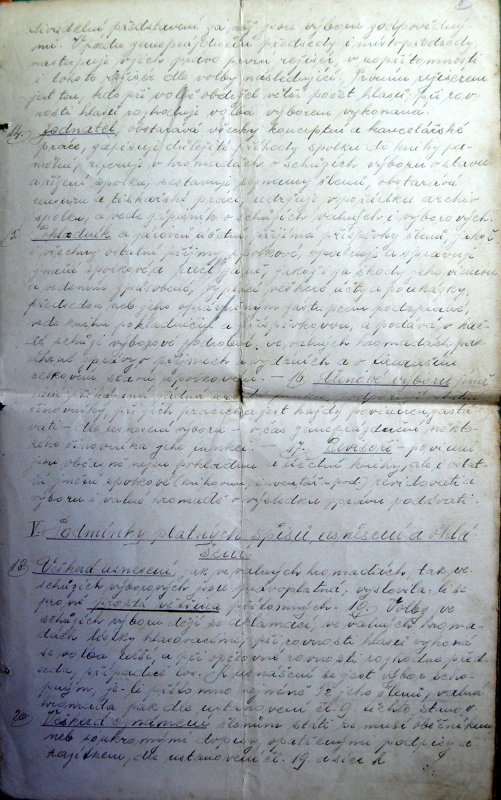 divadelní představení za něž jsou výboru zodpovědný-
mi. V pádu zaneprázdnění předsedy i místopředsedy
nastupuje v jich práva první režisér, v nepřítomnosti
i tohoto režisér dle volby následující. Prvním režisérem
jest ten, kdo při volbě obdržel větší počet hlasů, při rov-
nosti hlasů rozhoduje volba výborem vykonaná.
14. Jednatel, obstarává všechny konceptní a kancelářské
práce, zapisuje důležité příhody spolku do knihy pa-
mětní, referuje v hromadách o schůzích výboru o stavu
a řízení spolku, sestavuje seznamy členů, obstarává
censuru a tiskařské práce, udržuje v pořádku archiv
spolku, a vede zápisník o schůzích valných i výborových
Pokladník a zároveň účetní, přijímá příspěvky členů, jakož
i všechny ostatní příjmy spolkové, opatruje a spravuje
jmění spolkové a ručí za ně, jakož i za škody jeho vinou
a vedením způsobené, vyplácí veškeré účty a poukázky,
předsedou neb jeho oprávněným zástupcem podepsané,
vede knihu pokladniční a příspěvkovou, a podává v kaž-
dé schůzi výborové podrobné, ve valných hromadách pak
úhrnné zprávy, o příjmech i vydáních a o
celkovém stavu spolkovém. – 16. Členové výboru jimž
není přikázána žádná
činovníky, při jich pracech a jest každý povinen zastá-
vati – dle usnesení výboru – v čas zaneprázdnění někte-
rého činovníka jeho funkci. 17. Revisoři – povinni
jsou občas nejen pokladnu a účetní knihy, ale i ostat-
ní jmění spolkové (knihovnu, inventář – pod.) revidovati a
výboru i valné hromadě o výsledku zprávu podávati.
V. Podmínky platných spisů, usnesení a ohlá
šení.
18. Veškerá usnesení, jak ve valných hromadách, tak ve
schůzích výborových jsou právoplatná, vyslovila-li se
pro ně prostá většina přítomných. 19. Volby ve
schůzích výboru dějí se aklamací, ve valných hroma-
dách lístky hlasovacími, při rovnosti hlasů vykoná
se volba užší, a při opětovné rovnosti rozhodne před-
seda, případně los. K usnášení se jest výbor scho-
pným, je-li přítomno nejméně 1/2 jeho členů, valná
hromada pak dle ustanovení čl. 9. těchto stanov
20. Veškerá oznámení členům státi se musí oběžníkem
neb soukromými dopisy opatřenými podpisy a
razítkem, dle ustanovení čl. 19.